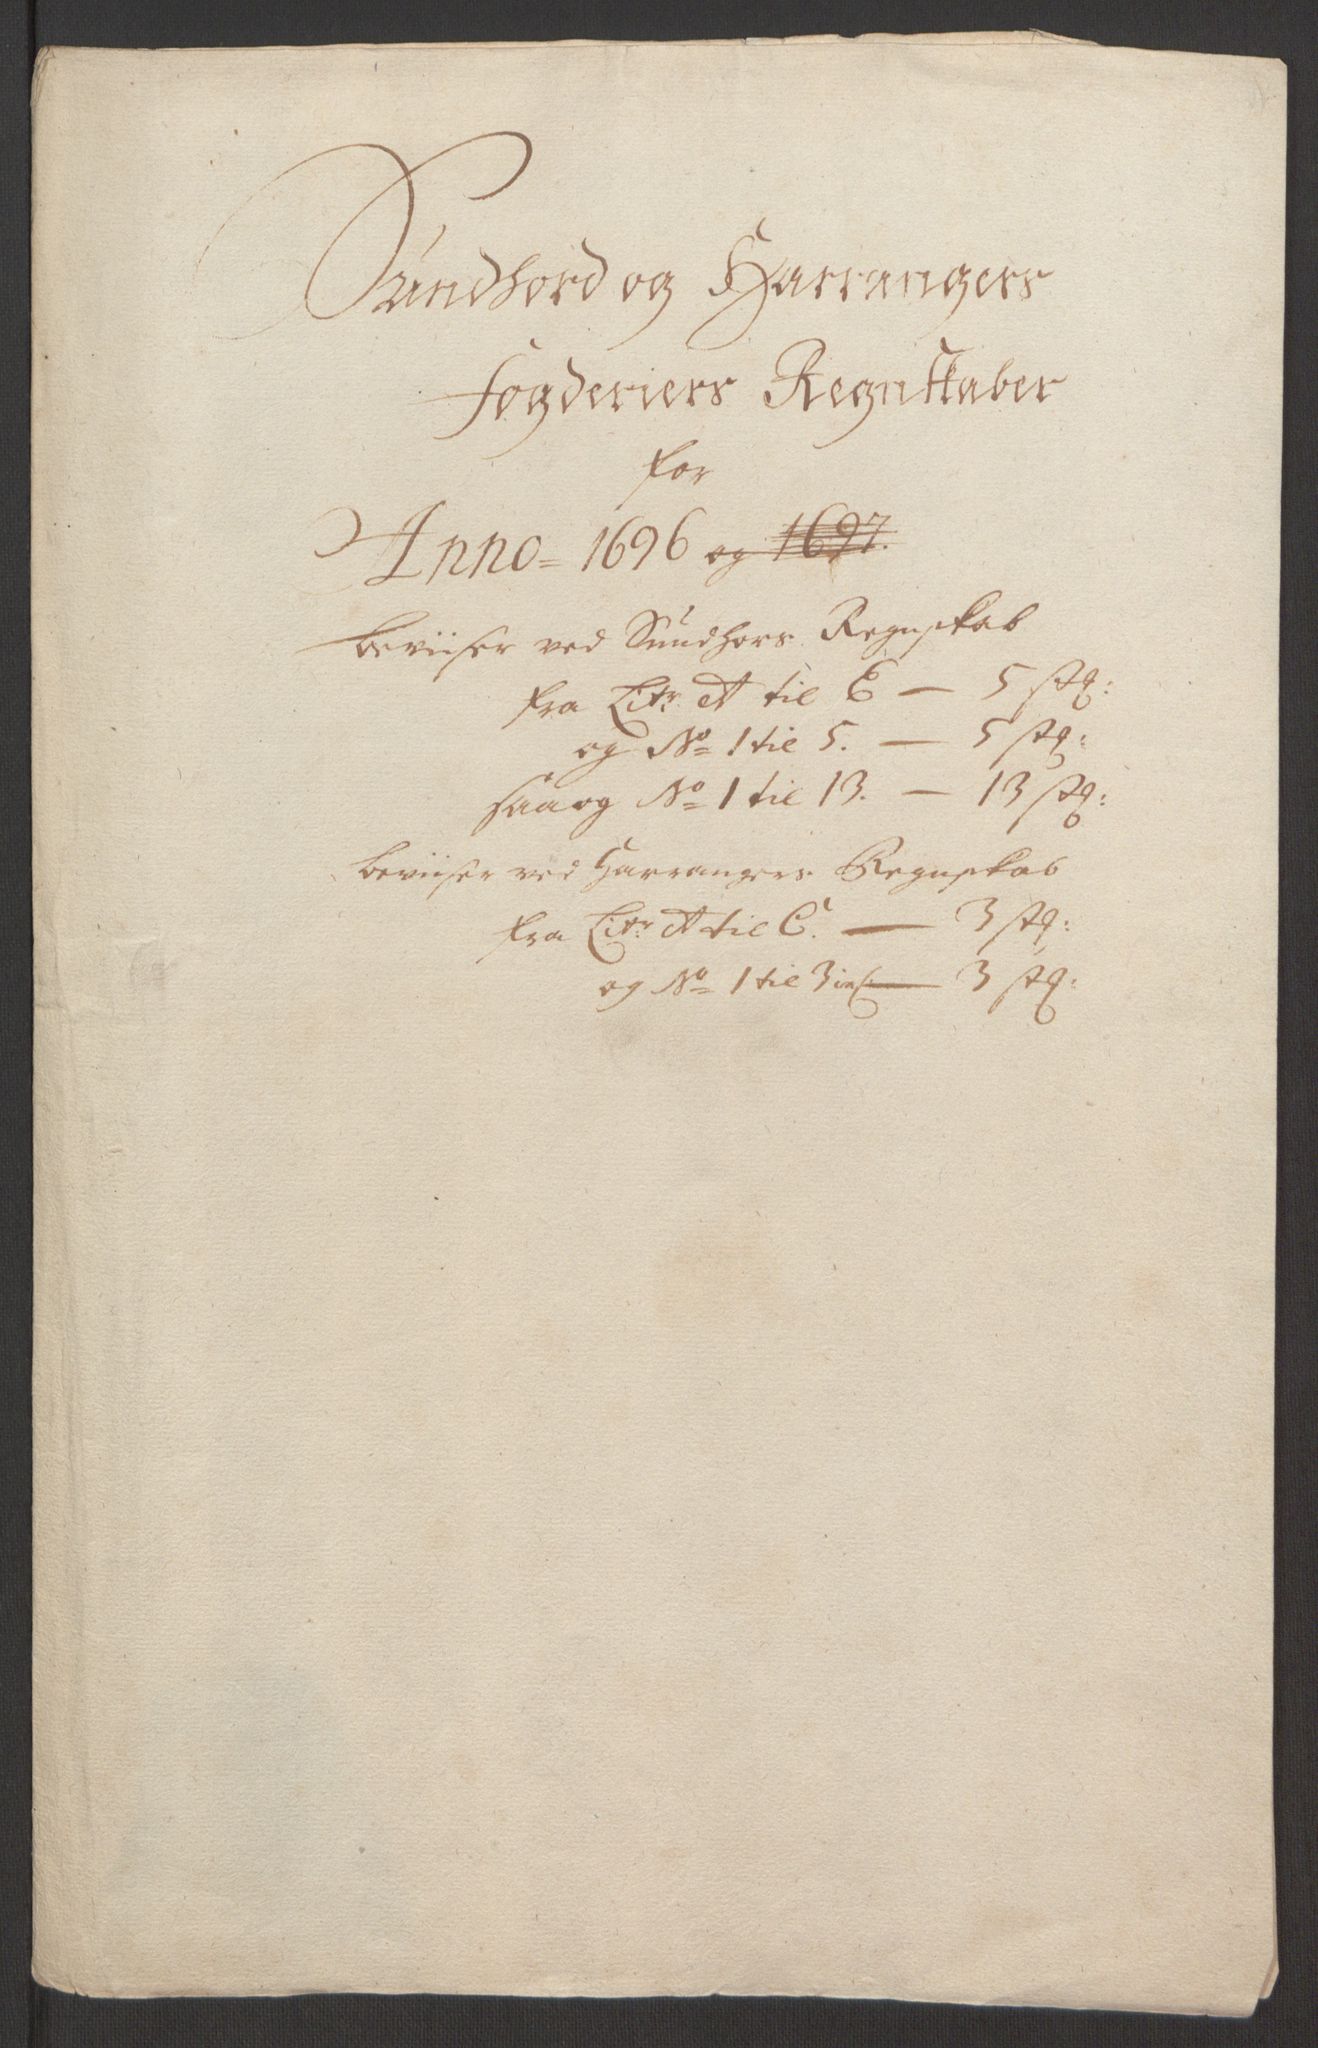 Sundhord og Harrangers
Fogderiers Regnskaber
for
Anno = 1696 og 1697.
beviiser ved Sundhors Regnskab
fra Litr: A til E — 5 stz:
og No 1 til 5. — 5 stz:
saa og No 1 til 13. — 13 stz:
beviiser ved Harrangers Regnskab
fra Litr: A til C. — 3 stz:
og No 1 til 3 inc — 3 stz: